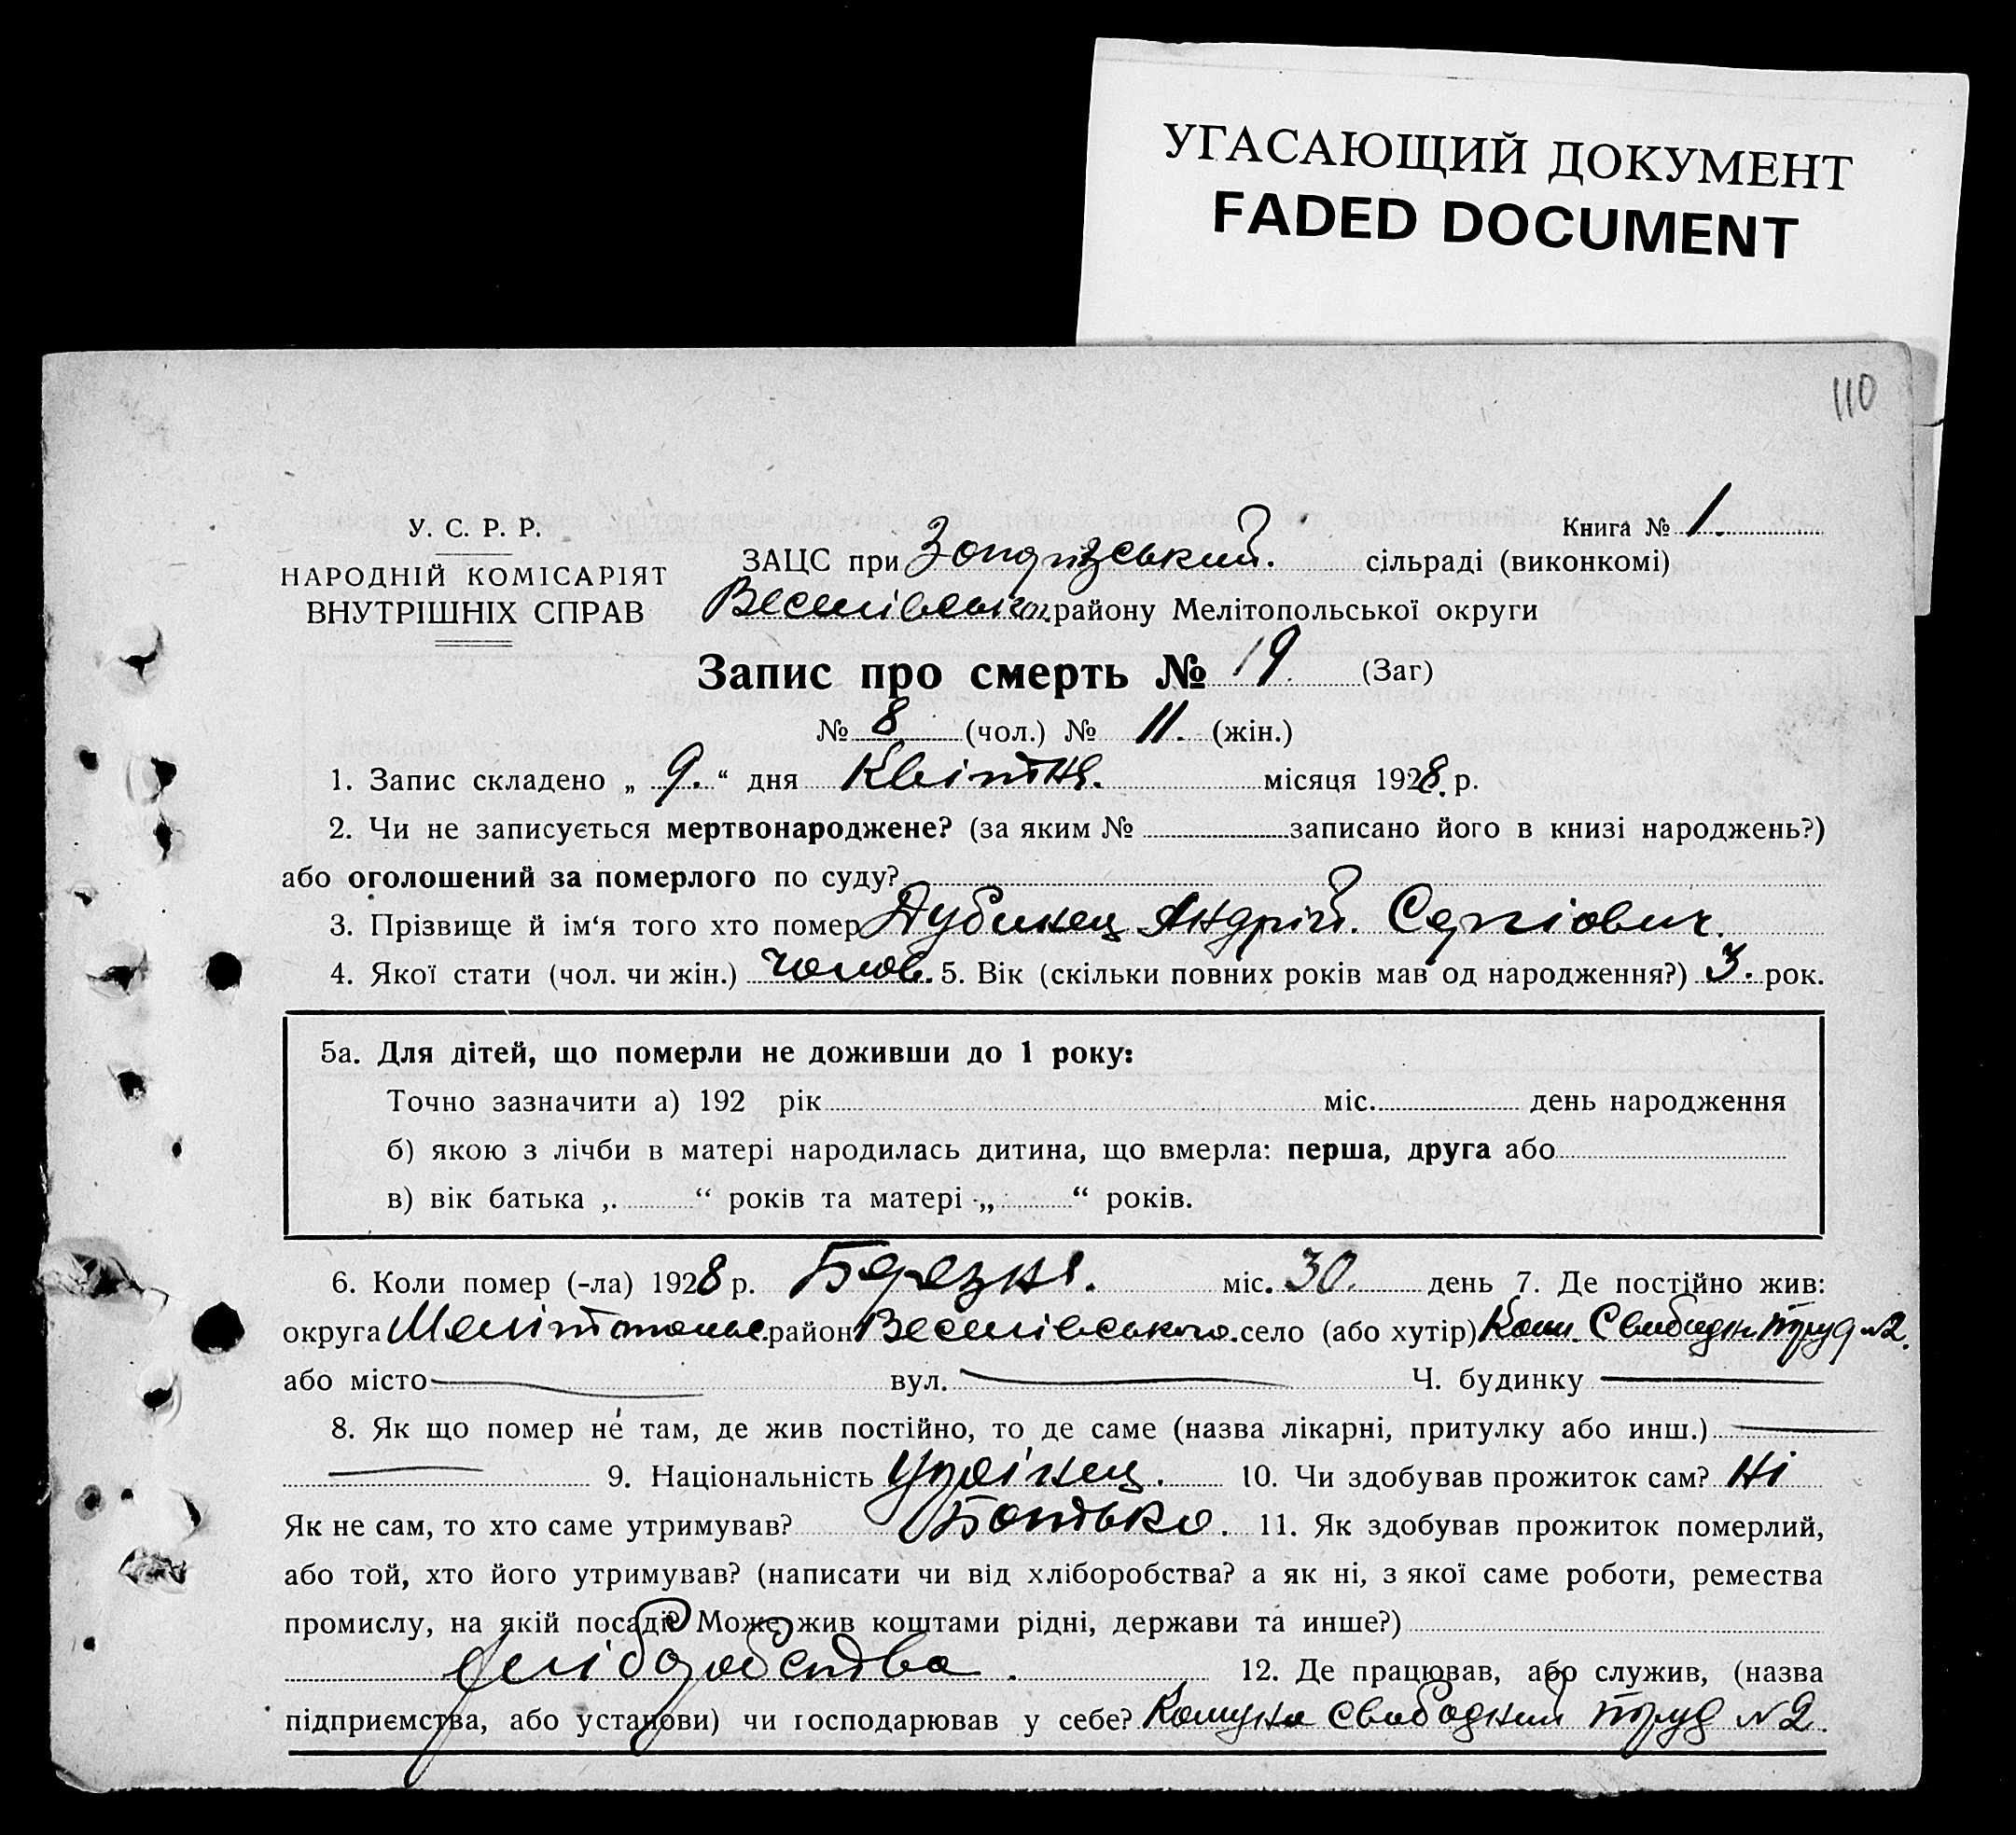 УГАСАЮЩИЙ ДОКУМЕНТ
FADED DOCUMENT
110
У. С. Р. Р.
НАРОДНІЙ КОМІСАРІЯТ
ВНУТРІШНІХ СПРАВ
Книга № 1.
ЗАЦС при сільраді (виконкомі)
Веселівськог. району Мелітопольської округи
Запис про смерть № 19. (Заг)
№ 8 (чол.) № 11. (жін.)
1. Запис складено „ 9. “ дня Квітня. місяця 1928. р.
2. Чи не записується мертвонароджене? (за яким № записано його в книзі народжень?)
або оголошений за померлого по суду?
3. Прізвище й ім‘я того хто помер Дубинец Андрій. Сергіович.
4. Якої стати (чол. чи жін.) чолов. 5. Вік (скільки повних років мав од народження?) 3. рок.
5а. Для дітей, що померли не доживши до 1 року:
Точно зазначити а) 192 рік міс. день народження
б) якою з лічби в матері народилась дитина, що вмерла: перша, друга або
в) вік батька „ “ років та матері „ “ років.
6. Коли помер (-ла) 1928 р. Березня. міс. 30. день 7. Де постійно жив:
округа Мелітопольс. район Веселівського. село (або хутір) Ком. Свободн труд №2.
або місто вул. Ч. будинку
8. Як що помер не там, де жив постійно, то де саме (назва лікарні, притулку або инш.)
9. Національність Украінец. 10. Чи здобував прожиток сам? Ні
Як не сам, то хто саме утримував? Батько. 11. Як здобував прожиток померлий,
або той, хто його утримував? (написати чи від хліборобства? а як ні, з якої саме роботи, ремества
промислу, на якій посаді? Може жив коштами рідні, держави та инше?)
хліборобства. 12. Де працював, або служив, (назва
підприємства, або установи) чи господарював у себе? Комуна Свободний труд №2.